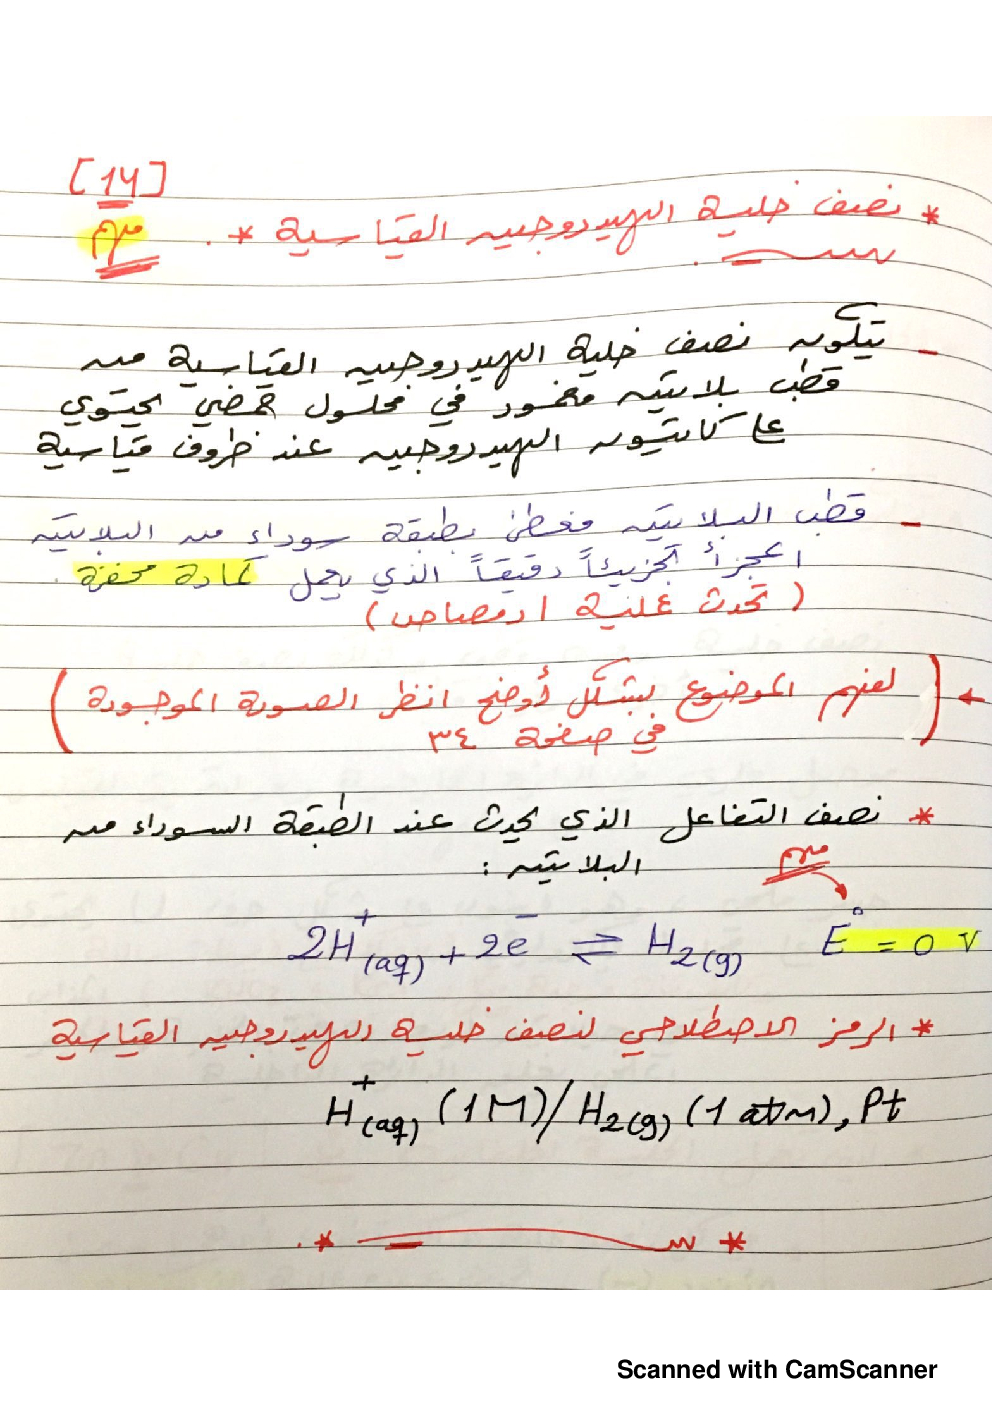 [14]
* نصف خلية الهيدروجين القياسية *
مهم
- يتكون نصف خلية الهيدروجين القياسية من
قطب بلاتين مغمور في محلول حمضي يحتوي
على كاتيون الهيدروجين عند ظروف قياسية
- قطب البلاتين مغطى بطبقة سوداء من البلاتين
المجزأ تجزيئاً دقيقاً الذي يعمل كمادة محفزة.
(تحدث عملية ادمصاص)
← (لفهم الموضوع بشكل أوضح انظر الصورة الموجودة
في صفحة ٣٤)
* نصف التفاعل الذي يحدث عند الطبقة السوداء من
البلاتين :
مهم
2H⁺(aq) + 2e⁻ ⇌ H₂(g) E° = 0 V
* الرمز الاصطلاحي لنصف خلية الهيدروجين القياسية
H⁺(aq) (1M)/H₂(g) (1 atm), Pt
Scanned with CamScanner